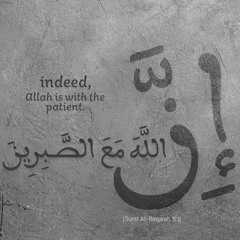 indeed,
Allah is with the
patient.
إِنَّ
اللَّهَ مَعَ الصَّبِرِينَ
[Surat Al-Baqarah,